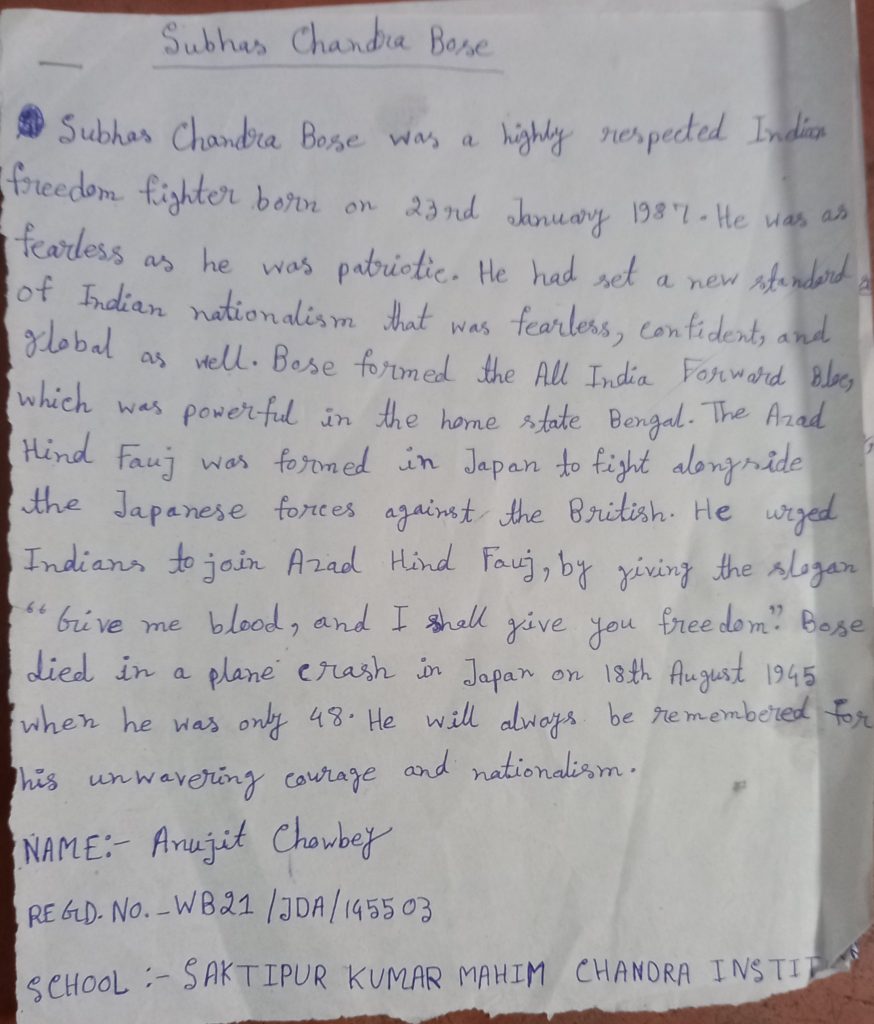 Subhas Chandra Bose
Subhas Chandra Bose was a highly respected Indian
freedom fighter born on 23rd January 1987. He was as
fearless as he was patriotic. He had set a new standard
of Indian nationalism that was fearless, confident, and
global as well. Bose formed the All India Forward Bloc,
which was powerful in the home state Bengal. The Azad
Hind Fauj was formed in Japan to fight alongside
the Japanese forces against the British. He urged
Indians to join Azad Hind Fauj, by giving the slogan
"Give me blood, and I shall give you freedom". Bose
died in a plane crash in Japan on 18th August 1945
when he was only 48. He will always be remembered for
his unwavering courage and nationalism.
NAME:- Anujit Chowbey
REGD. NO. - WB21/JDA/145503
SCHOOL :- SAKTIPUR KUMAR MAHIM CHANDRA